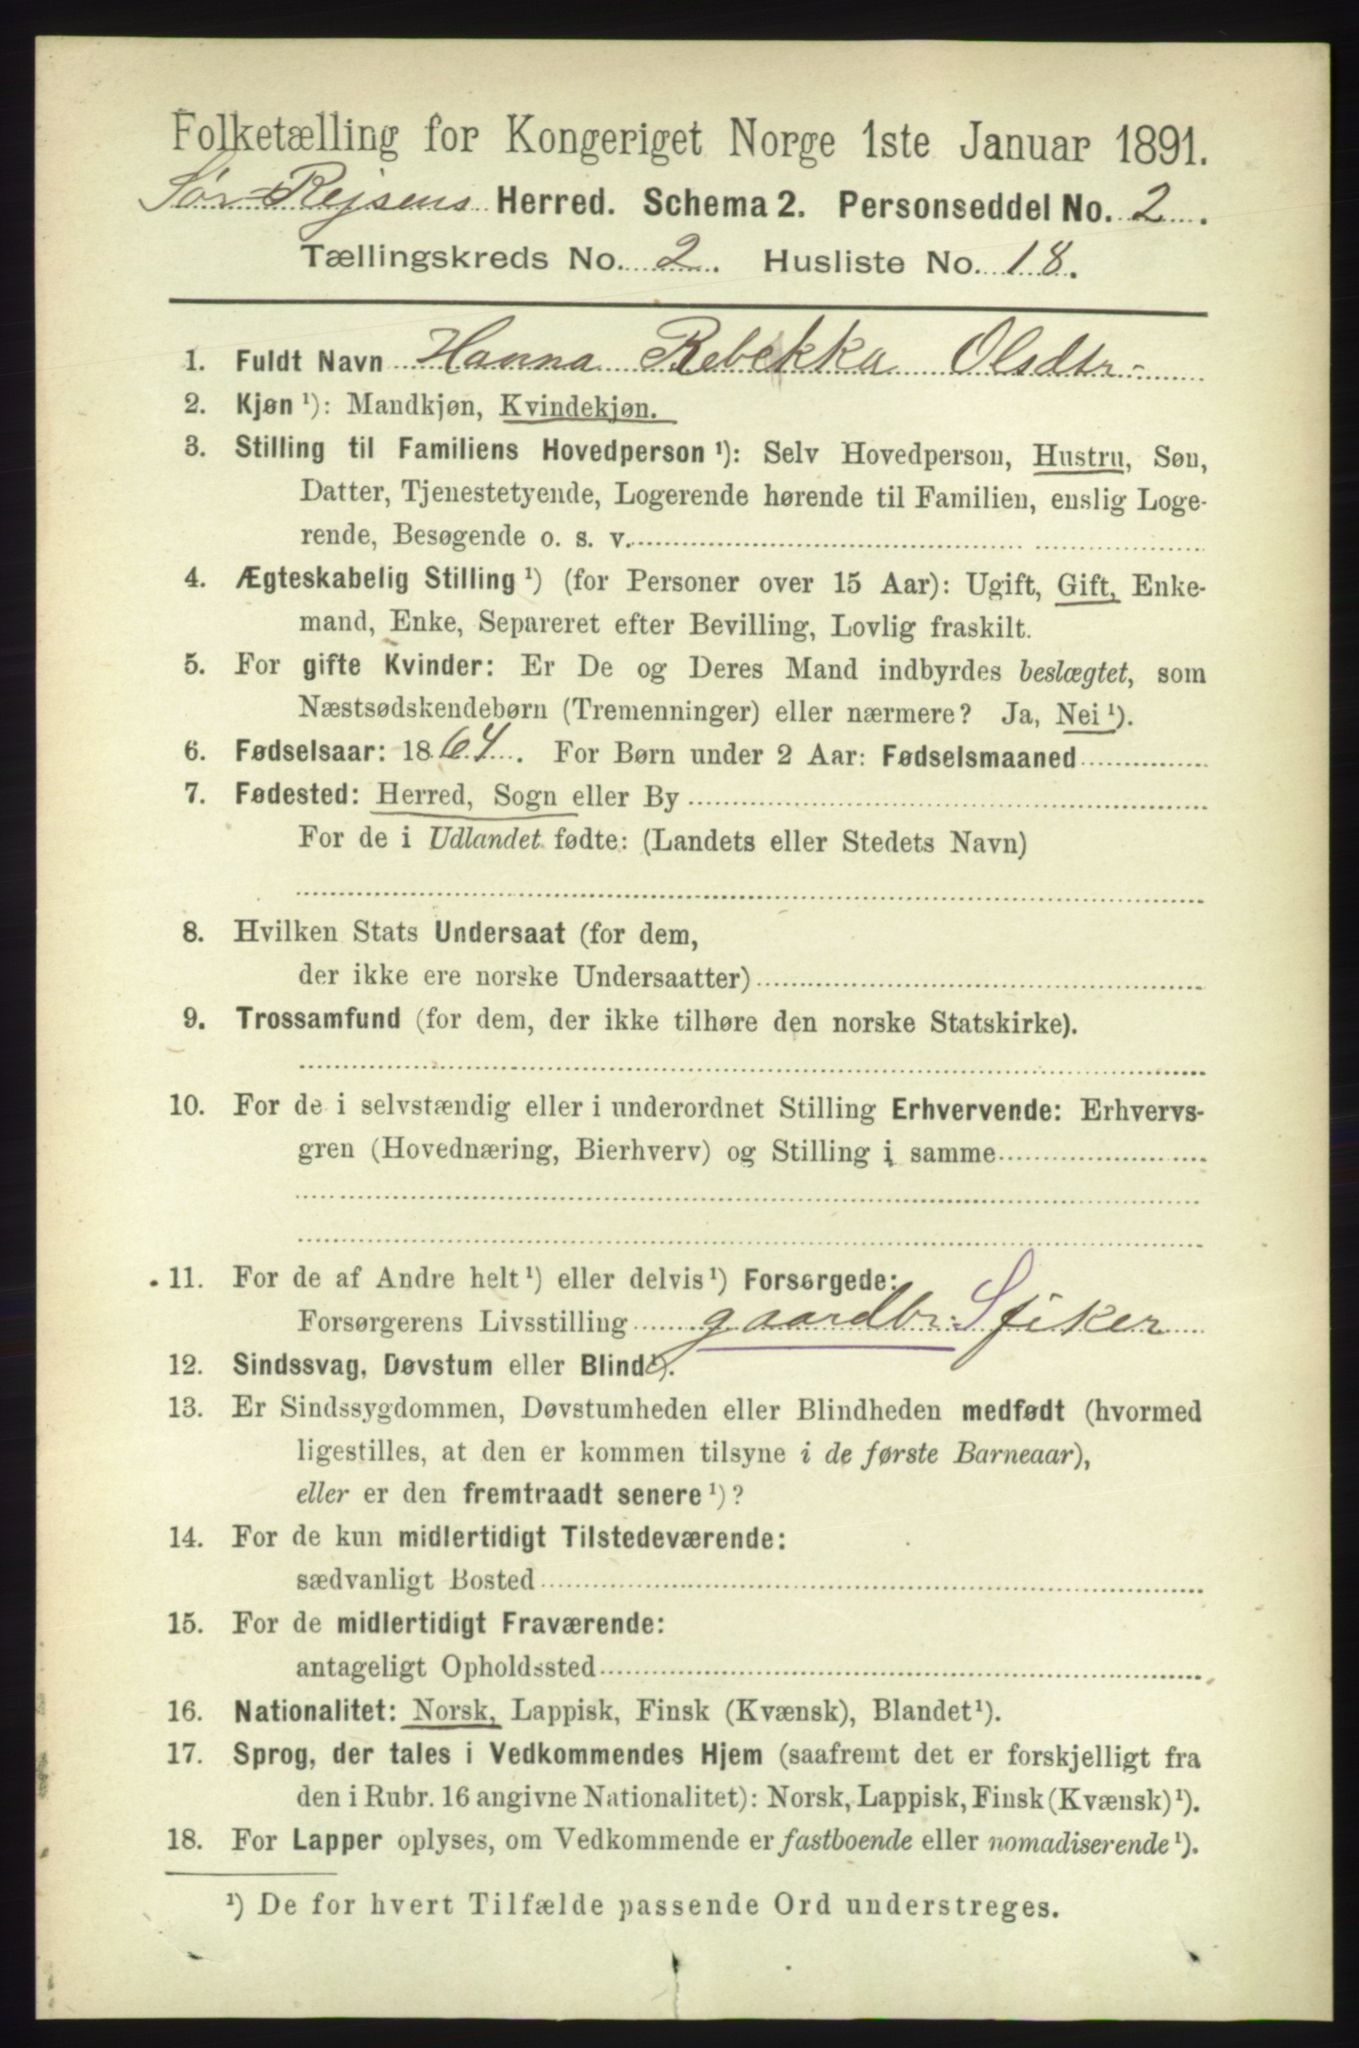 Folketælling for Kongeriget Norge 1ste Januar 1891.
Sør-Rejsens Herred. Schema 2. Personseddel No. 2.
Tællingskreds No. 2. Husliste No. 18.
1. Fuldt Navn Hanna Rebekka Olsdtr-
2. Kjøn ¹): Mandkjøn, Kvindekjøn.
3. Stilling til Familiens Hovedperson ¹): Selv Hovedperson, Hustru, Søn,
Datter, Tjenestetyende, Logerende hørende til Familien, enslig Loge-
rende, Besøgende o. s. v.
4. Ægteskabelig Stilling ¹) (for Personer over 15 Aar): Ugift, Gift, Enke-
mand, Enke, Separeret efter Bevilling, Lovlig fraskilt.
5. For gifte Kvinder: Er De og Deres Mand indbyrdes beslægtet, som
Næstsødskendebørn (Tremenninger) eller nærmere? Ja, Nei ¹).
6. Fødselsaar: 1864. For Børn under 2 Aar: Fødselsmaaned
7. Fødested: Herred, Sogn eller By
For de i Udlandet fødte: (Landets eller Stedets Navn)
8. Hvilken Stats Undersaat (for dem,
der ikke ere norske Undersaatter)
9. Trossamfund (for dem, der ikke tilhøre den norske Statskirke).
10. For de i selvstændig eller i underordnet Stilling Erhvervende: Erhvervs-
gren (Hovednæring, Bierhverv) og Stilling i samme
11. For de af Andre helt ¹) eller delvis ¹) Forsørgede:
Forsørgerens Livsstilling gaardbr. S fiker
12. Sindssvag, Døvstum eller Blind ¹).
13. Er Sindssygdommen, Døvstumheden eller Blindheden medfødt (hvormed
ligestilles, at den er kommen tilsyne i de første Barneaar),
eller er den fremtraadt senere ¹)?
14. For de kun midlertidigt Tilstedeværende:
sædvanligt Bosted
15. For de midlertidigt Fraværende:
antageligt Opholdssted
16. Nationalitet: Norsk, Lappisk, Finsk (Kvænsk), Blandet ¹).
17. Sprog, der tales i Vedkommendes Hjem (saafremt det er forskjelligt fra
den i Rubr. 16 angivne Nationalitet): Norsk, Lappisk, Finsk (Kvænsk) ¹).
18. For Lapper oplyses, om Vedkommende er fastboende eller nomadiserende ¹).
¹) De for hvert Tilfælde passende Ord understreges.